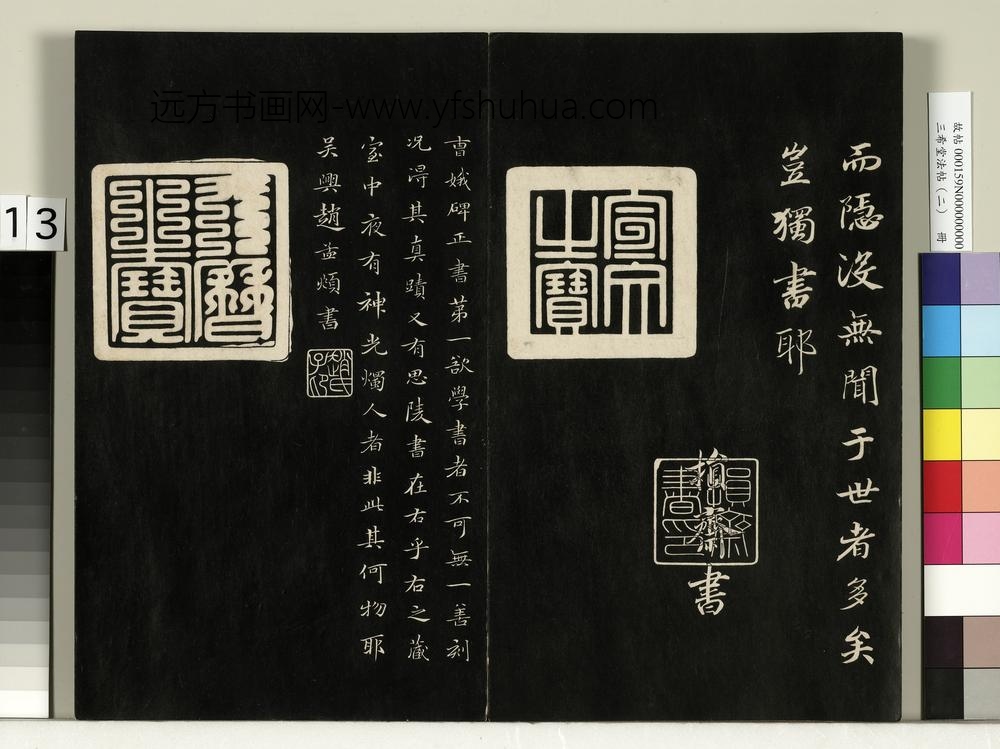 远方书画网-www.yfshuhua.com
故帖 000159N000000000
三希堂法帖（二） 冊
而隱沒無聞于世者多矣
豈獨書耶
損齋書
曹娥碑正書第一欲學書者不可無一善刻
况得其真蹟又有思陵書在右乎右之藏
室中夜有神光燭人者非此其何物耶
吳興趙孟頫書
趙氏子昂
天曆之寶
13